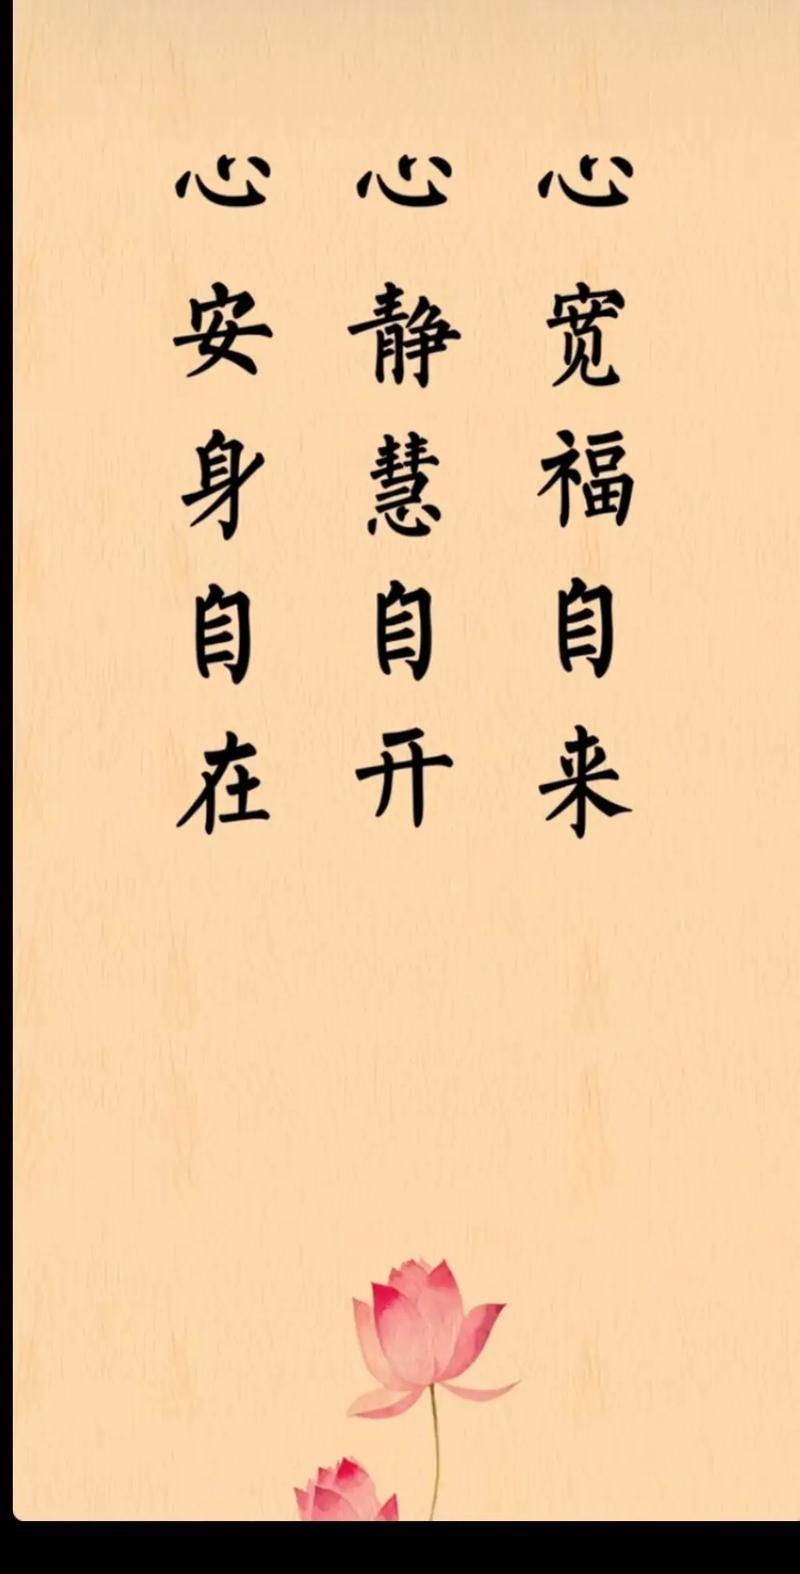 心宽福自来
心静慧自开
心安身自在